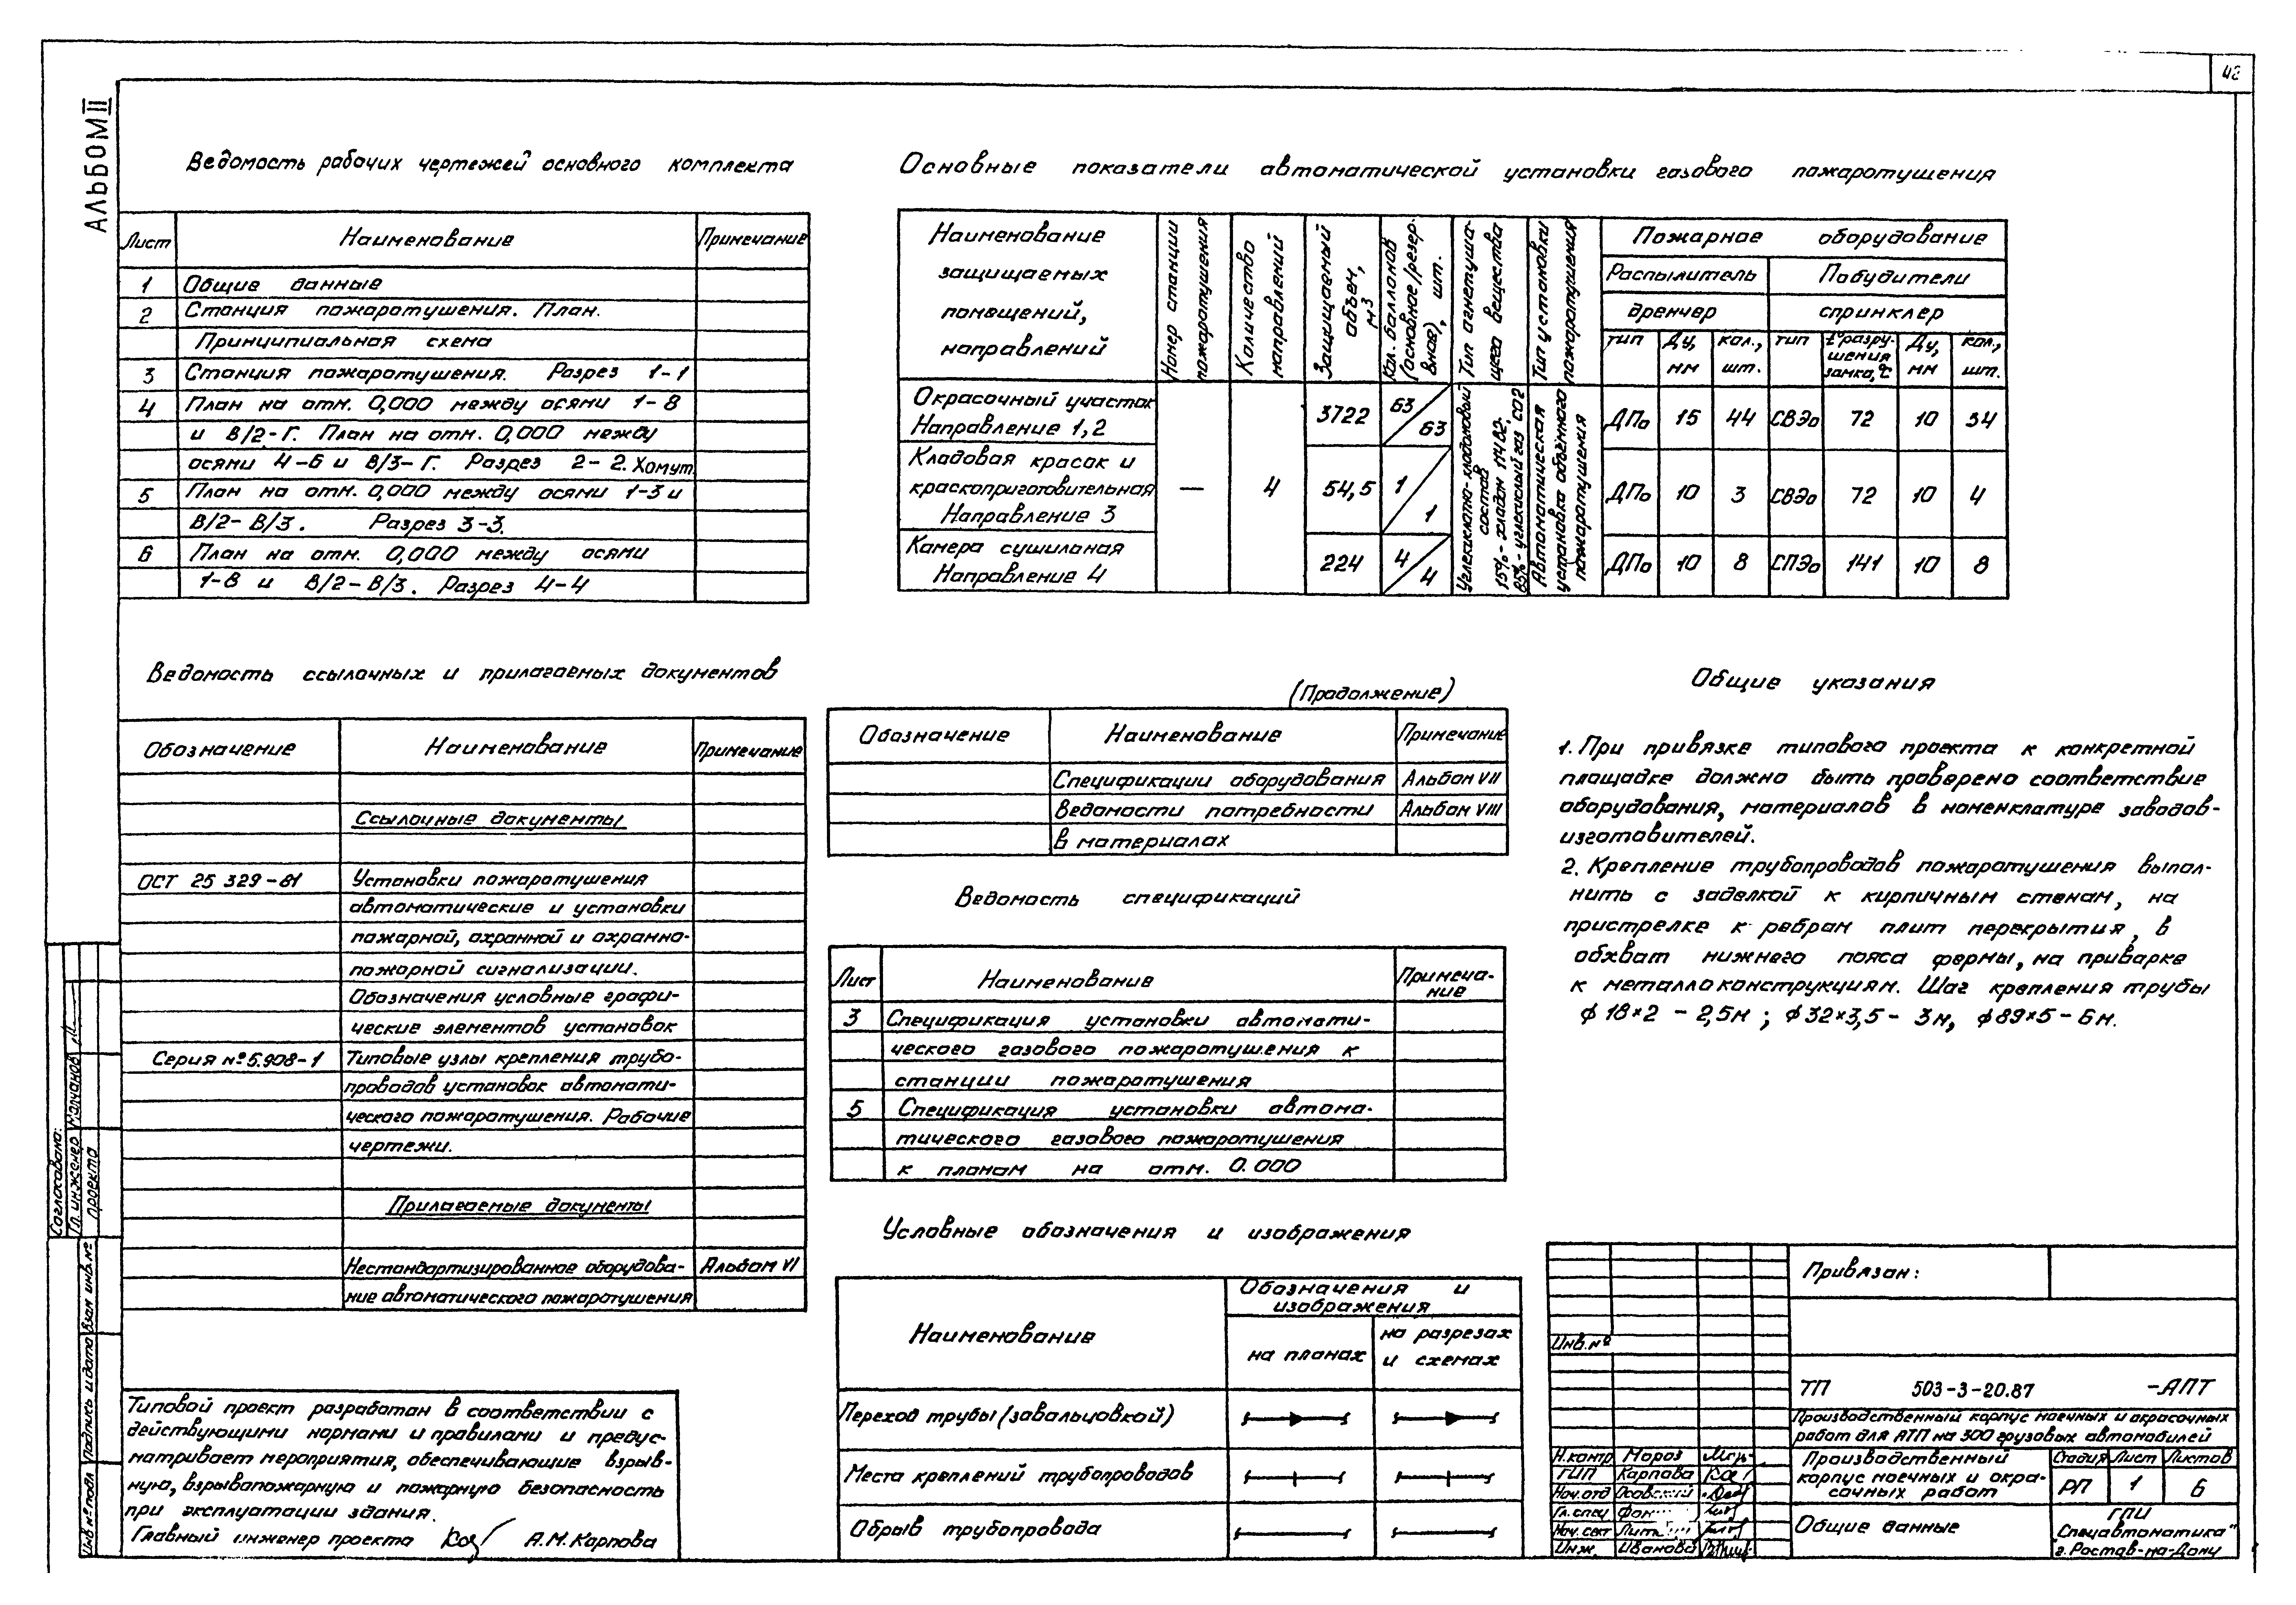 42
АЛЬБОМ II
Ведомость рабочих чертежей основного комплекта
Лист Наименование Примечание
1 Общие данные
2 Станция пожаротушения. План.
Принципиальная схема
3 Станция пожаротушения. Разрез 1-1
4 План на отм. 0,000 между осями 1-8
и В/2-Г. План на отм. 0,000 между
осями 4-6 и В/3-Г. Разрез 2-2. Хомут.
5 План на отм. 0,000 между осями 1-3 и
В/2-В/3. Разрез 3-3.
6 План на отм. 0,000 между осями
1-8 и В/2-В/3. Разрез 4-4
Основные показатели автоматической установки газового пожаротушения
Наименование
защищаемых
помещений,
направлений
Номер станции
пожаротушения
Количество
направлений
Защищаемый
объем,
м3
Кол. баллонов
(основное/резер-
вное), шт.
Тип огнетуша-
щего вещества
Тип установки
пожаротушения
Пожарное оборудование
Распылитель Побудители
дренчер спринклер
тип Ду, мм кол., шт. тип t° разру-
шения
замка, °С Ду, мм кол., шт.
Окрасочный участок
Направление 1,2
3722 63/63 ДПо 15 44 СВЭо 72 10 34
Кладовая красок и
краскоприготовительная
Направление 3
— 4 54,5 1/1 ДПо 10 3 СВЭо 72 10 4
Камера сушильная
Направление 4
224 4/4 ДПо 10 8 СПЭо 141 10 8
Углекислотно-хладоновый
состав
15%-хладон 114В2,
85%-углекислый газ СО2
Автоматическая
установка объёмного
пожаротушения
Ведомость ссылочных и прилагаемых документов
Обозначение Наименование Примечание
Ссылочные документы
ОСТ 25 329-81 Установки пожаротушения
автоматические и установки
пожарной, охранной и охранно-
пожарной сигнализации.
Обозначения условные графи-
ческие элементов установок
Серия № 5.908-1 Типовые узлы крепления трубо-
проводов установок автомати-
ческого пожаротушения. Рабочие
чертежи.
Прилагаемые документы
Нестандартизированное оборудова- Альбом VI
ние автоматического пожаротушения
(Продолжение)
Обозначение Наименование Примечание
Спецификации оборудования Альбом VII
Ведомости потребности Альбом VIII
в материалах
Ведомость спецификаций
Лист Наименование Примеча-
ние
3 Спецификация установки автомати-
ческого газового пожаротушения к
станции пожаротушения
5 Спецификация установки автома-
тического газового пожаротушения
к планам на отм. 0.000
Условные обозначения и изображения
Наименование
Обозначения и
изображения
на планах
на разрезах
и схемах
Переход трубы (завальцовкой)
Места креплений трубопроводов
Обрыв трубопровода
Общие указания
1. При привязке типового проекта к конкретной
площадке должно быть проверено соответствие
оборудования, материалов в номенклатуре заводов-
изготовителей.
2. Крепление трубопроводов пожаротушения выпол-
нить с заделкой к кирпичным стенам, на
пристрелке к ребрам плит перекрытия, в
обхват нижнего пояса фермы, на приварке
к металлоконструкциям. Шаг крепления трубы
ф 18×2 - 2,5м; ф 32×3,5 - 3м, ф 89×5 - 6м.
Типовой проект разработан в соответствии с
действующими нормами и правилами и предус-
матривает мероприятия, обеспечивающие взрыв-
ную, взрывопожарную и пожарную безопасность
при эксплуатации здания.
Главный инженер проекта А.М.Карпова
Согласовано:
Гл. инженер Молчанов
проекта
Инв № подл Подпись и дата Взам инв. №
Привязан:
Инв. №
ТП 503-3-20.87 -АПТ
Производственный корпус моечных и окрасочных
работ для АТП на 300 грузовых автомобилей
Н.контр Мороз
ГИП Карпова
Нач.отд
Гл.спец
Нач.сект
Инж. Иванова
Производственный
корпус моечных и окра-
сочных работ
Стадия Лист Листов
РП 1 6
Общие данные
ГПИ
"Спецавтоматика"
г. Ростов-на-Дону